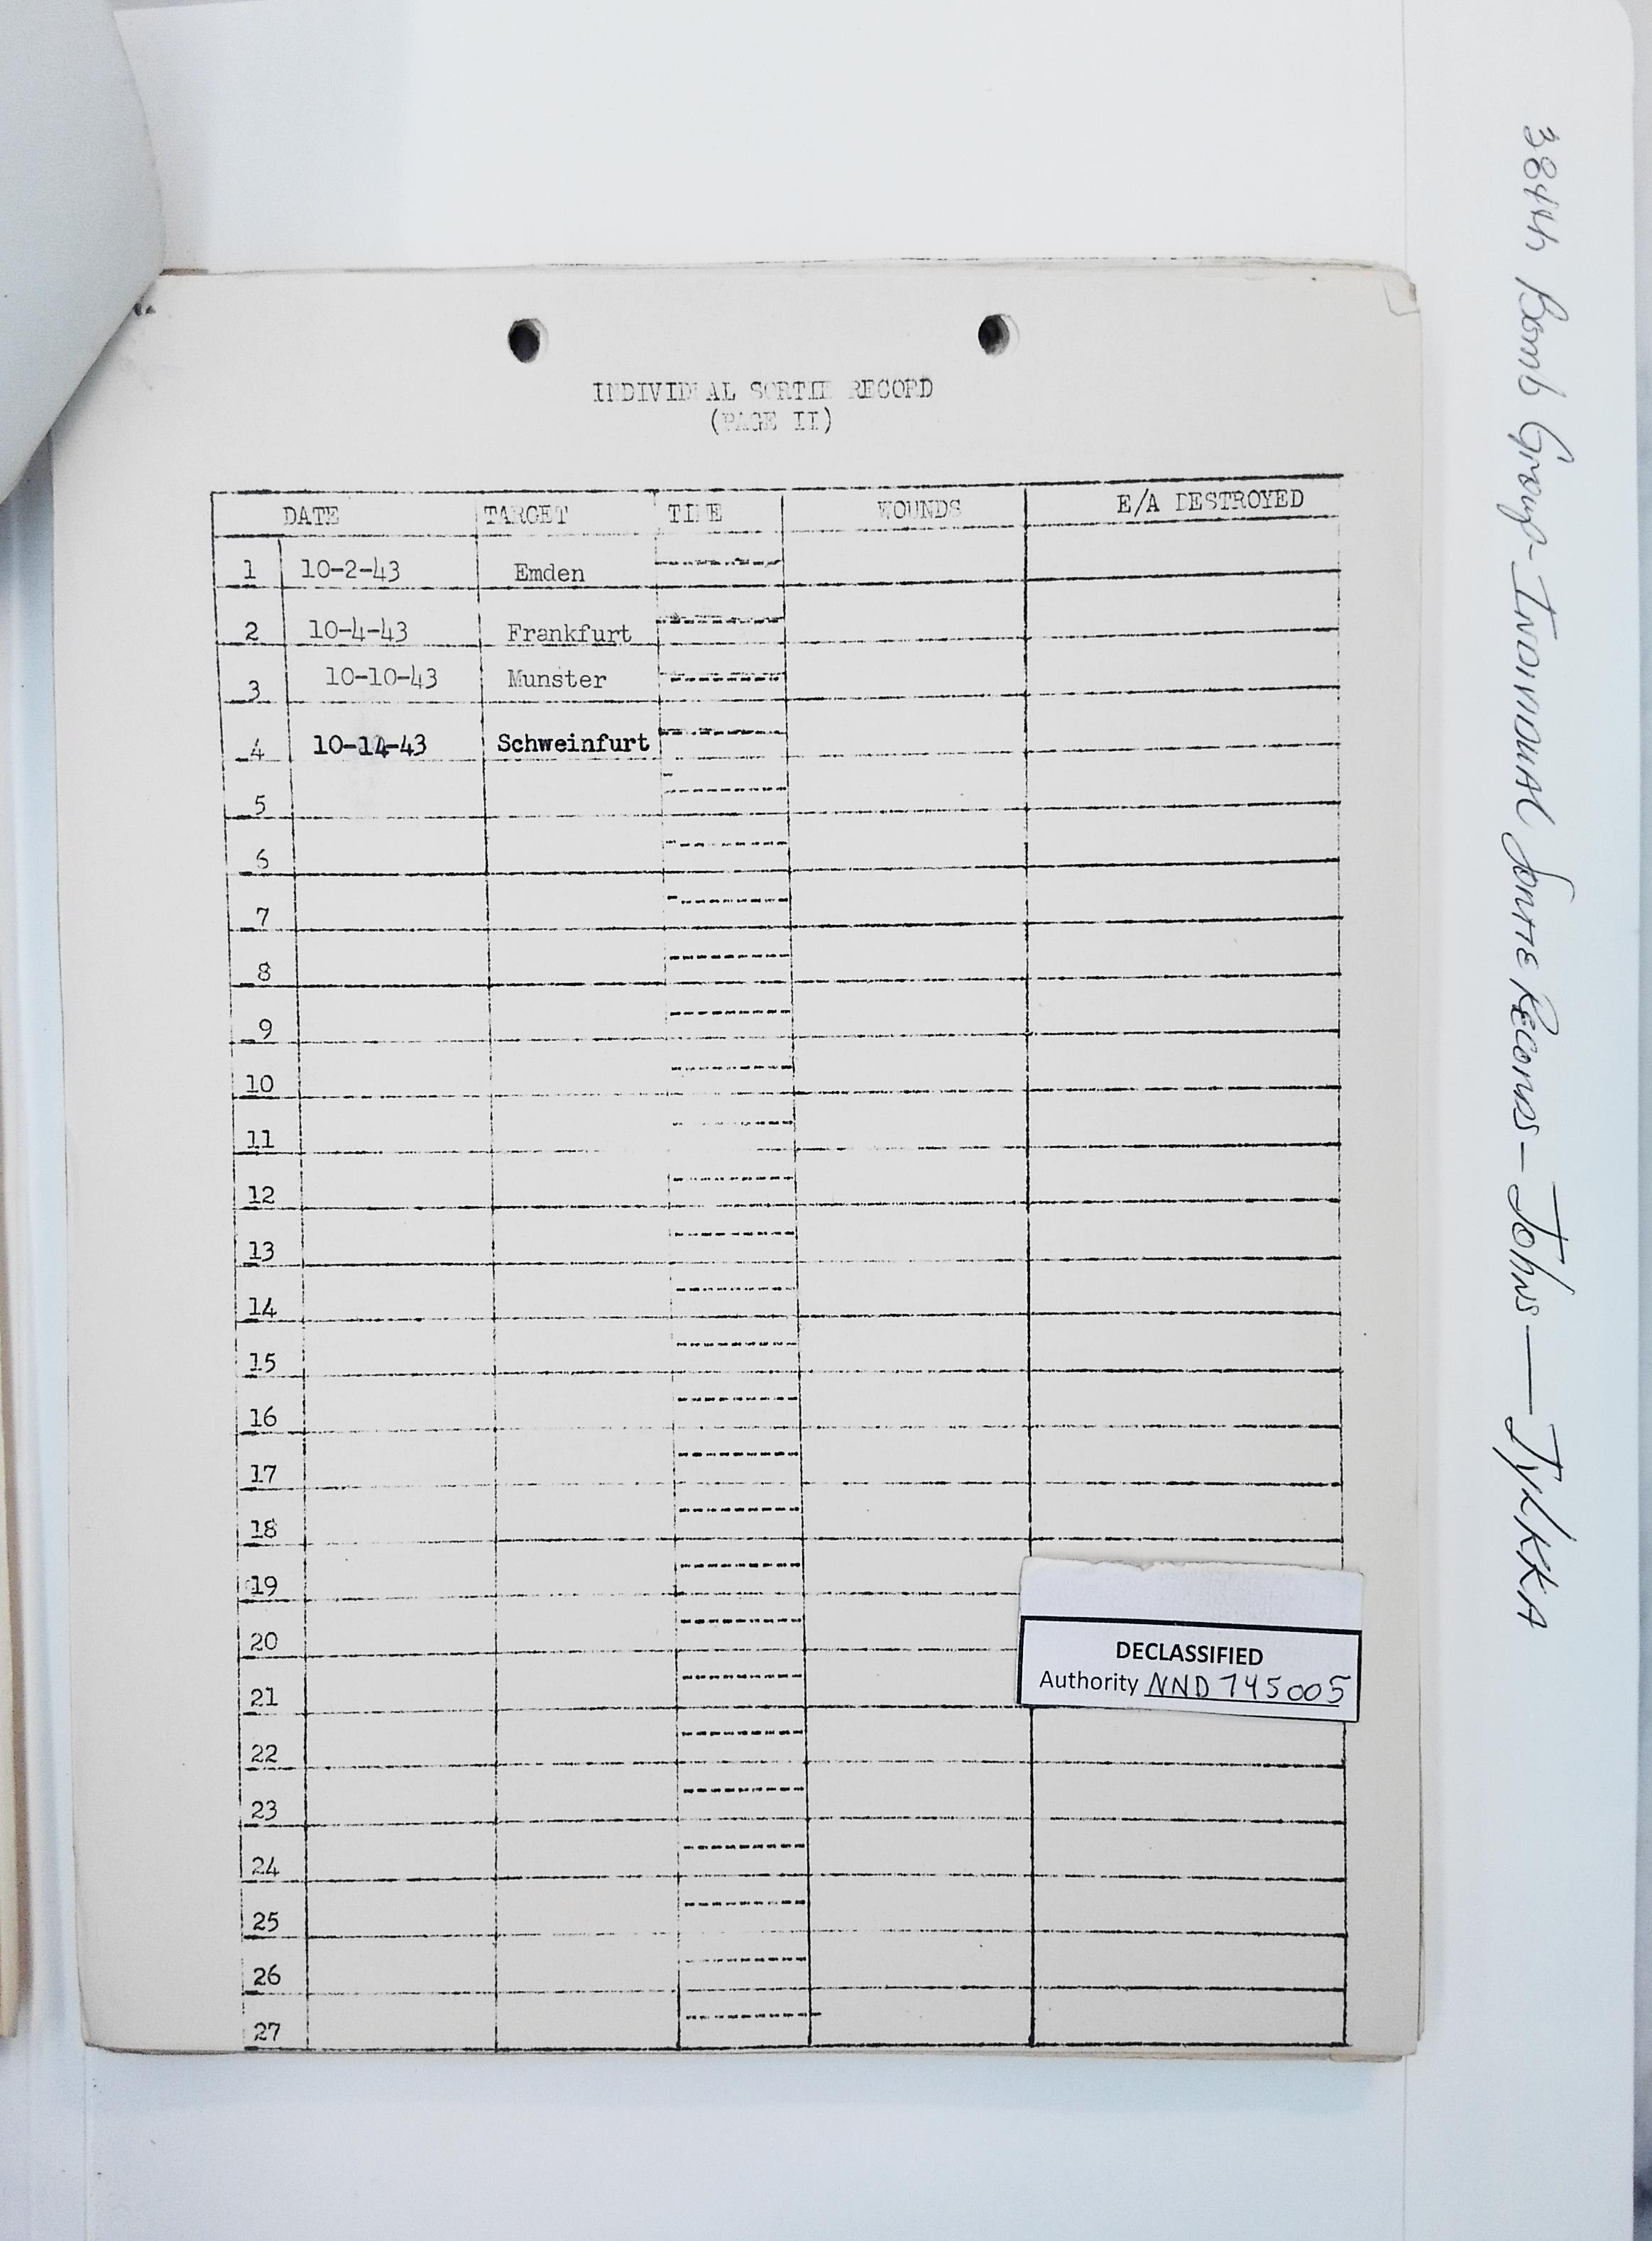 INDIVIDUAL SORTIE RECORD
(PAGE II)
DATE TARGET TIME WOUNDS E/A DESTROYED
1 10-2-43 Emden
2 10-4-43 Frankfurt
3 10-10-43 Munster
4 10-14-43 Schweinfurt
5
6
7
8
9
10
11
12
13
14
15
16
17
18
19
20
21
22
23
24
25
26
27
DECLASSIFIED
Authority NND 745005
384th Bomb Group - INDIVIDUAL Sortie Records - Johns - Tylkka